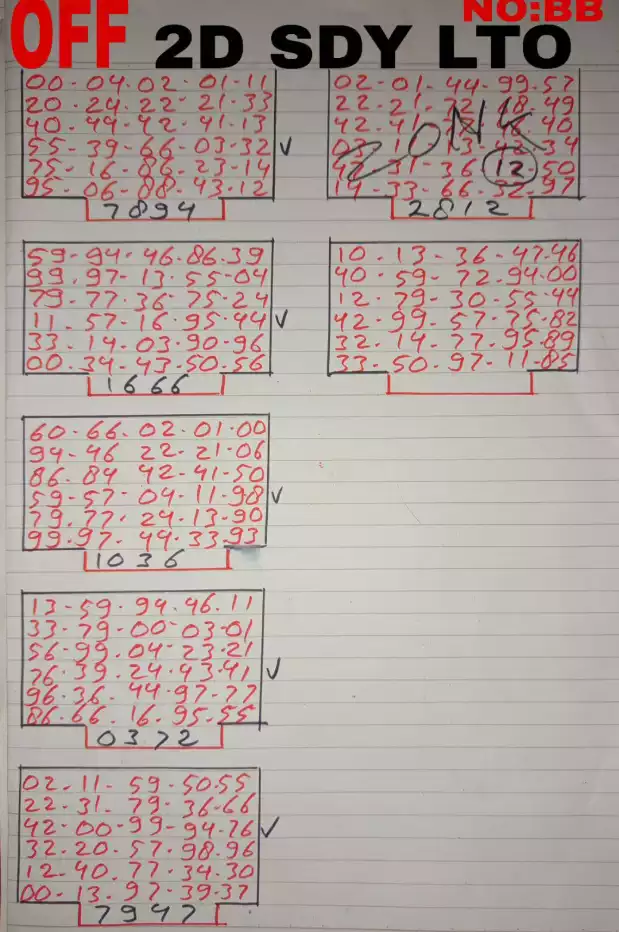 NO:BB
OFF 2D SDY LTO
00-04-02-01-11
20-24-22-21-33
40-44-42-41-13
55-39-66-03-32
75-16-86-23-14
95-06-88-43-12
7894
02-01-44-99-57
22-21-72-18-49
42-41- 48-40
03 43-34
42-31-36-12-50
14-33-66-32-97
ZONK
2812
59-94-46.86.39
99.97-13.55-04
79-77.36.75-24
11-57-16.95-44
33-14-03.90-96
00.34-43.50.56
1666
10.13-36-47.46
40-59-72.94.00
12.79-30-55-44
42-99-57-75-82
32.14.77.95.89
33.50.97-11-85
60-66.02-01-00
94-46 22-21-06
86.84 42-41-50
59-57-04-11-98
79.77.24-13-90
99.97.44.33.93
1036
13-59.94.46.11
33-79-00-03-01
56-99.04-23-21
76.39.24-43-41
96.36.44-97-77
86.66.16.95.55
0372
02-11-59-50.55
22-31.79-36-66
42-00-99-94-76
32.20-57.98.96
12-40.77-34.30
00-13.97-39-37
7947